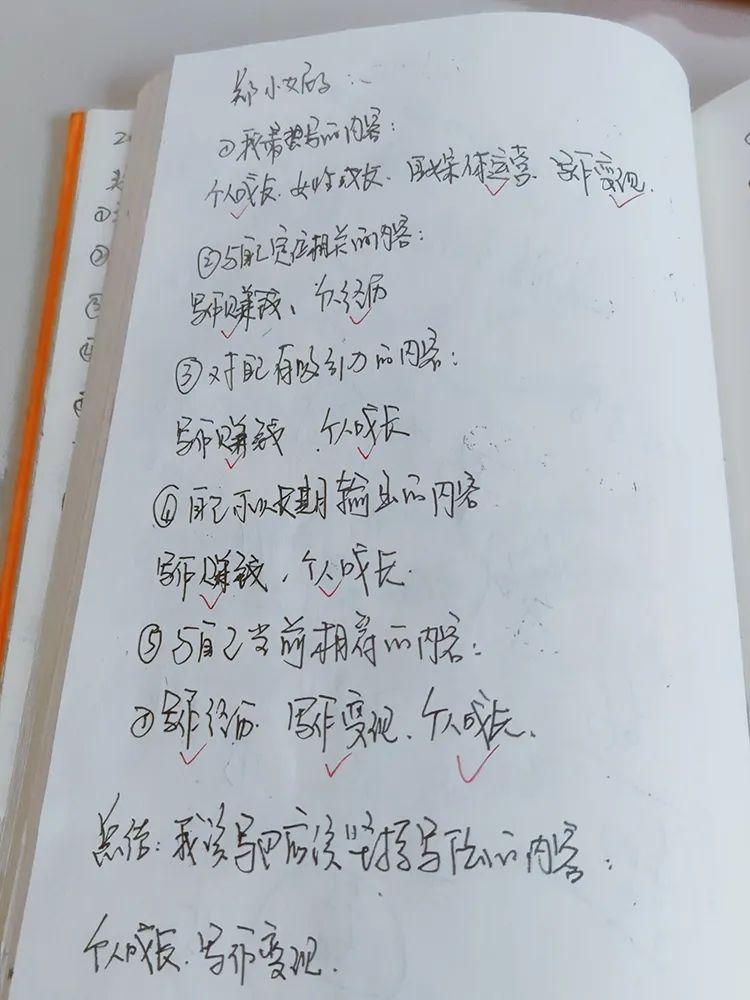 郑小姐的:
①我常想写的内容:
个人成长、女性成长、自媒体运营、写作变现.
②与自己定位相关的内容:
写作赚钱、个人经历
③对自己有吸引力的内容:
写作赚钱、个人成长
④自己可以长期输出的内容
写作赚钱、个人成长.
⑤与自己当前相符的内容:
①写作经历、写作变现、个人成长、
总结:我该写应该坚持写下去的内容:
个人成长、写作变现.
①
②
③
④